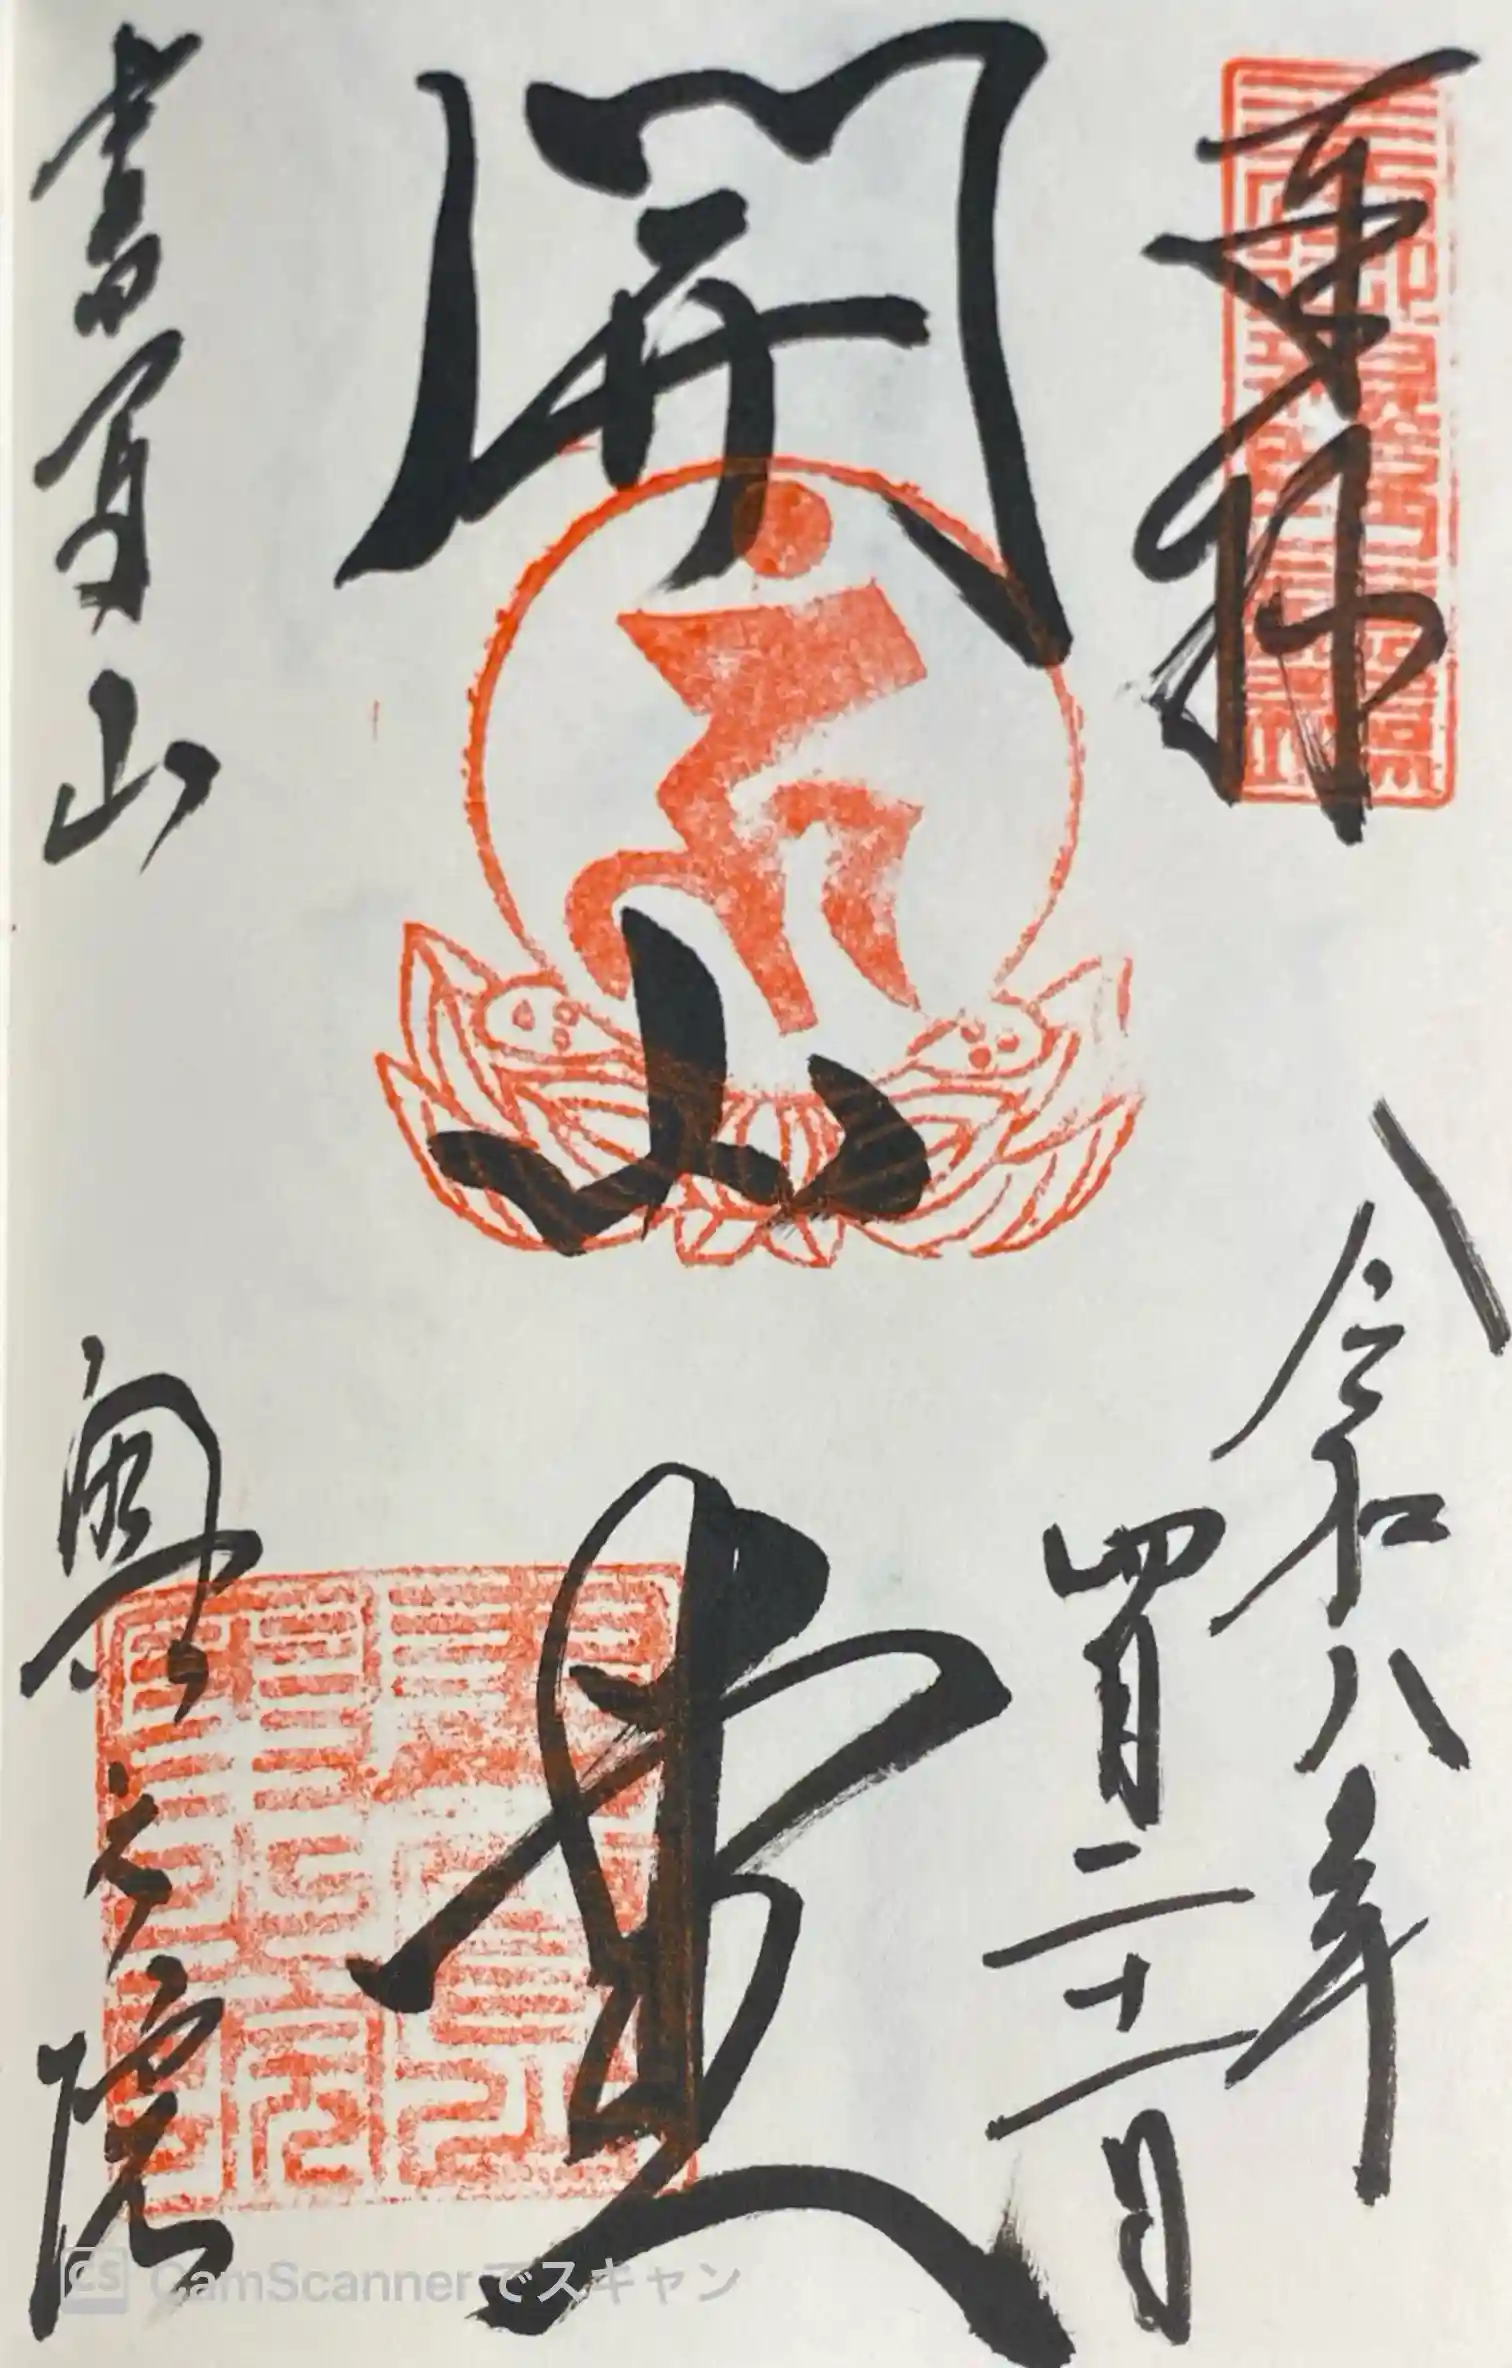 奉拝
令和八年
四月二十一日
開山堂
書写山
奥之院
CS CamScanner でスキャン